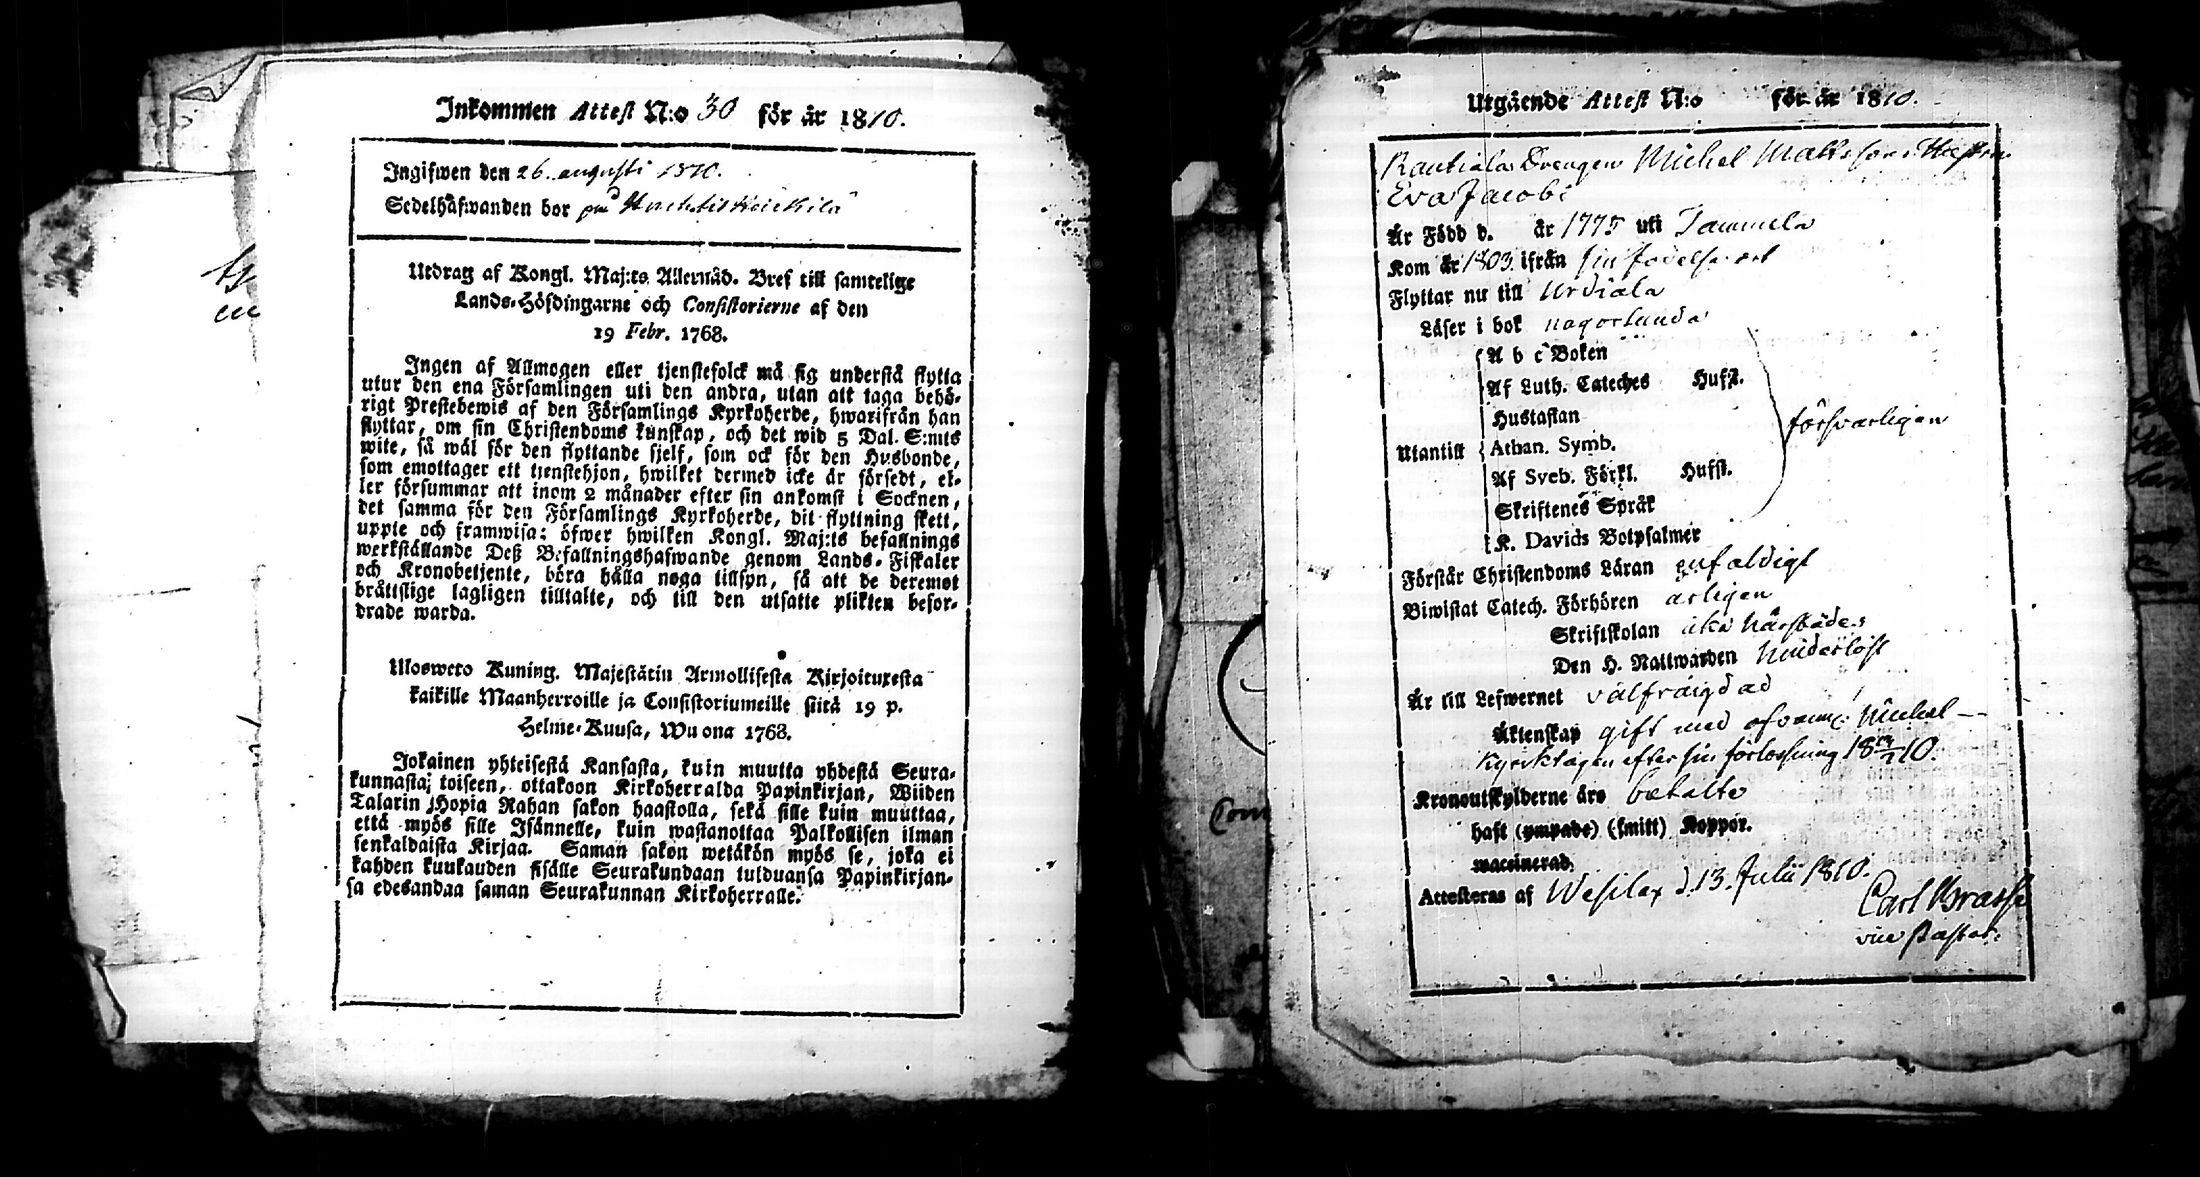 Inkommen Attest N:o 30 för år 1810.
Ingifwen den 26. augusti 1810.
Sedelhafwanden bor på
Utdrag af Kongl. Maj:ts Allernåd. Bref till samtelige
Lands-Höfdingarne och Consistorierne af den
19 Febr. 1768.
Ingen af Allmogen eller tjenstefolck må sig understå flytta
utur den ena Församlingen uti den andra, utan att taga behö-
rigt Prestebewis af den Församlings Kyrkoherde, hwarifrån han
flyttar, om sin Christendoms kunskap, och det wid 5 Dal. S:mts
wite, så wäl för den flyttande sjelf, som ock för den Husbonde,
som emottager ett tjenstehjon, hwilket dermed icke är försedt, el-
ler försummar att inom 2 månader efter sin ankomst i Socknen,
det samma för den Församlings Kyrkoherde, dit flyttning skett,
uppte och framwisa: öfwer hwilken Kongl. Maj:ts befallnings
werkställande Deß Befallningshafwande genom Lands-Fiskaler
och Kronobetjente, böra hålla noga tillsyn, så att de deremot
bråttslige lagligen tilltalte, och till den utsatte plikten befor-
drade warda.
Ulosweto Kuning. Majestätin Armollisesta Kirjoituxesta
kaikille Maanherroille ja Consistoriumeille siitä 19 p.
Helme-Kuusa, Wuona 1768.
Jokainen yhteisestä Kansasta, kuin muutta yhdestä Seura-
kunnasta toiseen, ottakoon Kirkoherralda Papinkirjan, Wiiden
Talarin Hopia Rahan sakon haastolla, sekä sille kuin muuttaa,
että myös sille Isännelle, kuin wastanottaa Palkollisen ilman
senkaldaista Kirjaa. Saman sakon wetäkön myös se, joka ei
kahden kuukauden sisälle Seurakundaan tulduansa Papinkirjan-
sa edesandaa saman Seurakunnan Kirkoherralle.
Utgående Attest N:o för år 1810.
Rautiala Drengen Michel Mattssons Hustru
Eva Jacobs
Är Född d. år 1775 uti Tammela
Kom år 1803 ifrån sin födelse ort
Flyttar nu till Urdiala
Läser i bok någorlunda
A b c Boken
Af Luth. Cateches Hufst.
Hustaflan
Utantill Athan. Symb. försvarligen
Af Sveb. Förkl. Hufst.
Skriftenes Språk
K. Davids Botpsalmer
Förstår Christendoms Läran enfaldigt
Biwistat Catech. Förhören årligen
Skriftskolan
Den H. Nattwarden hinderlöst
Är till Lefwernet välfräigdad
Äktenskap gift med ofvann. Michel
Kyrktagen efter sin förlossning 18 10.
Kronoutskylderne äro betalte
haft (ympade) (smitt) Koppor.
waccinerad,
Attesteras af Wesilax d. 13. Julii 1810.
Carl
vice Pastor.